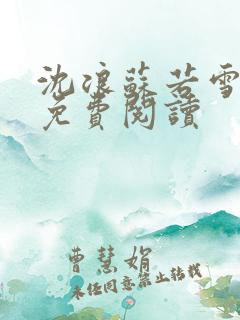 沈浪蘇若雪
免費閱讀
曹慧娟
未經同意禁止轉載